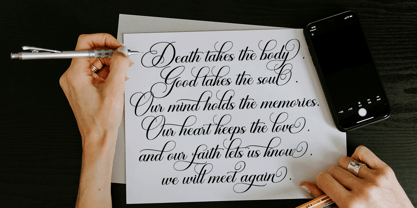 Death takes the body
Good takes the soul .
Our mind holds the memories.
Our heart keeps the love .
and our faith lets us know .
we will meet again .